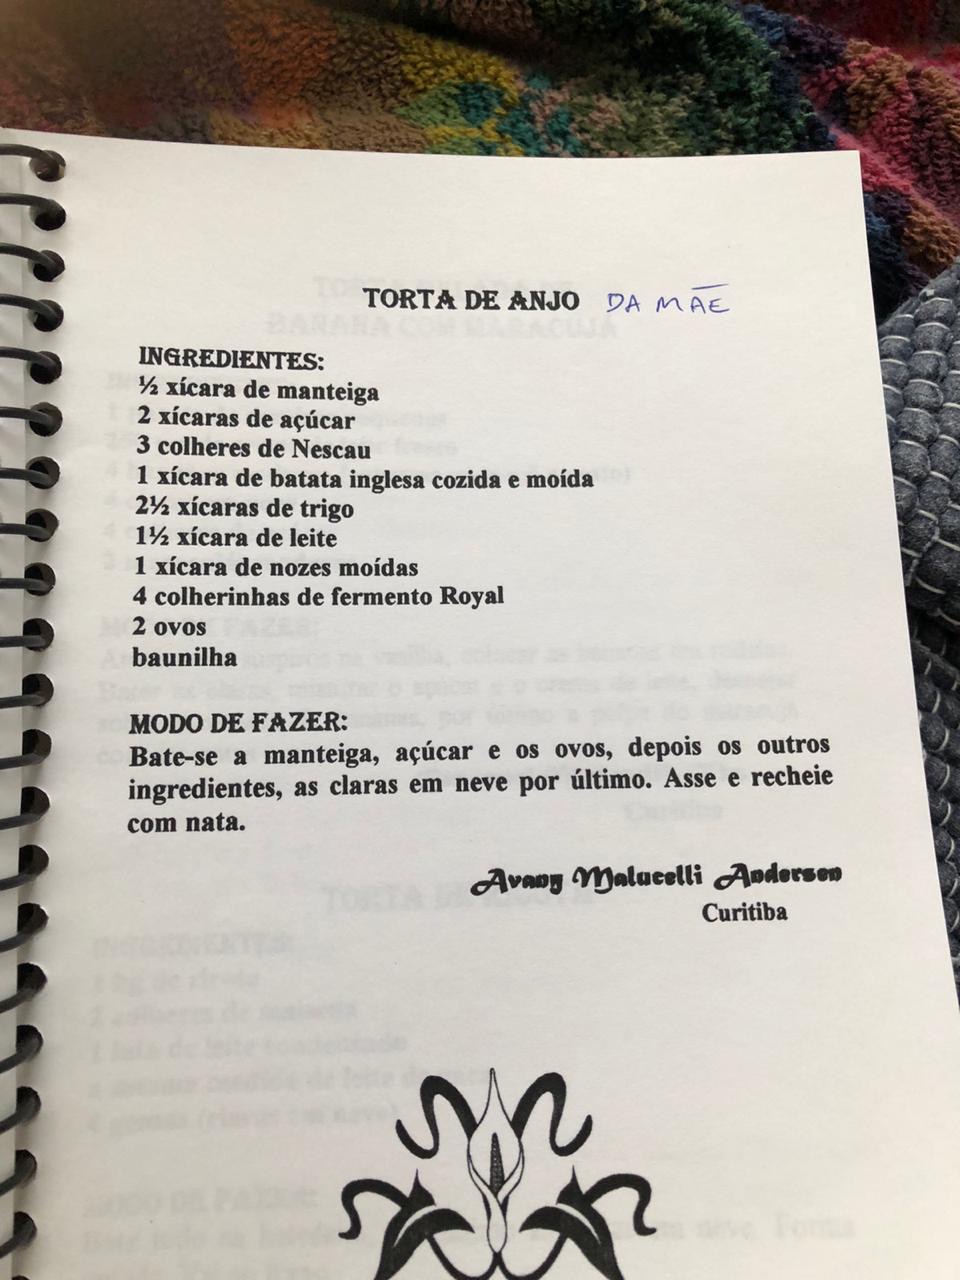 TORTA DE ANJO DA MÃE
INGREDIENTES:
½ xícara de manteiga
2 xícaras de açúcar
3 colheres de Nescau
1 xícara de batata inglesa cozida e moída
2½ xícaras de trigo
1½ xícara de leite
1 xícara de nozes moídas
4 colherinhas de fermento Royal
2 ovos
baunilha
MODO DE FAZER:
Bate-se a manteiga, açúcar e os ovos, depois os outros
ingredientes, as claras em neve por último. Asse e recheie
com nata.
Avany Malucelli Andersen
Curitiba